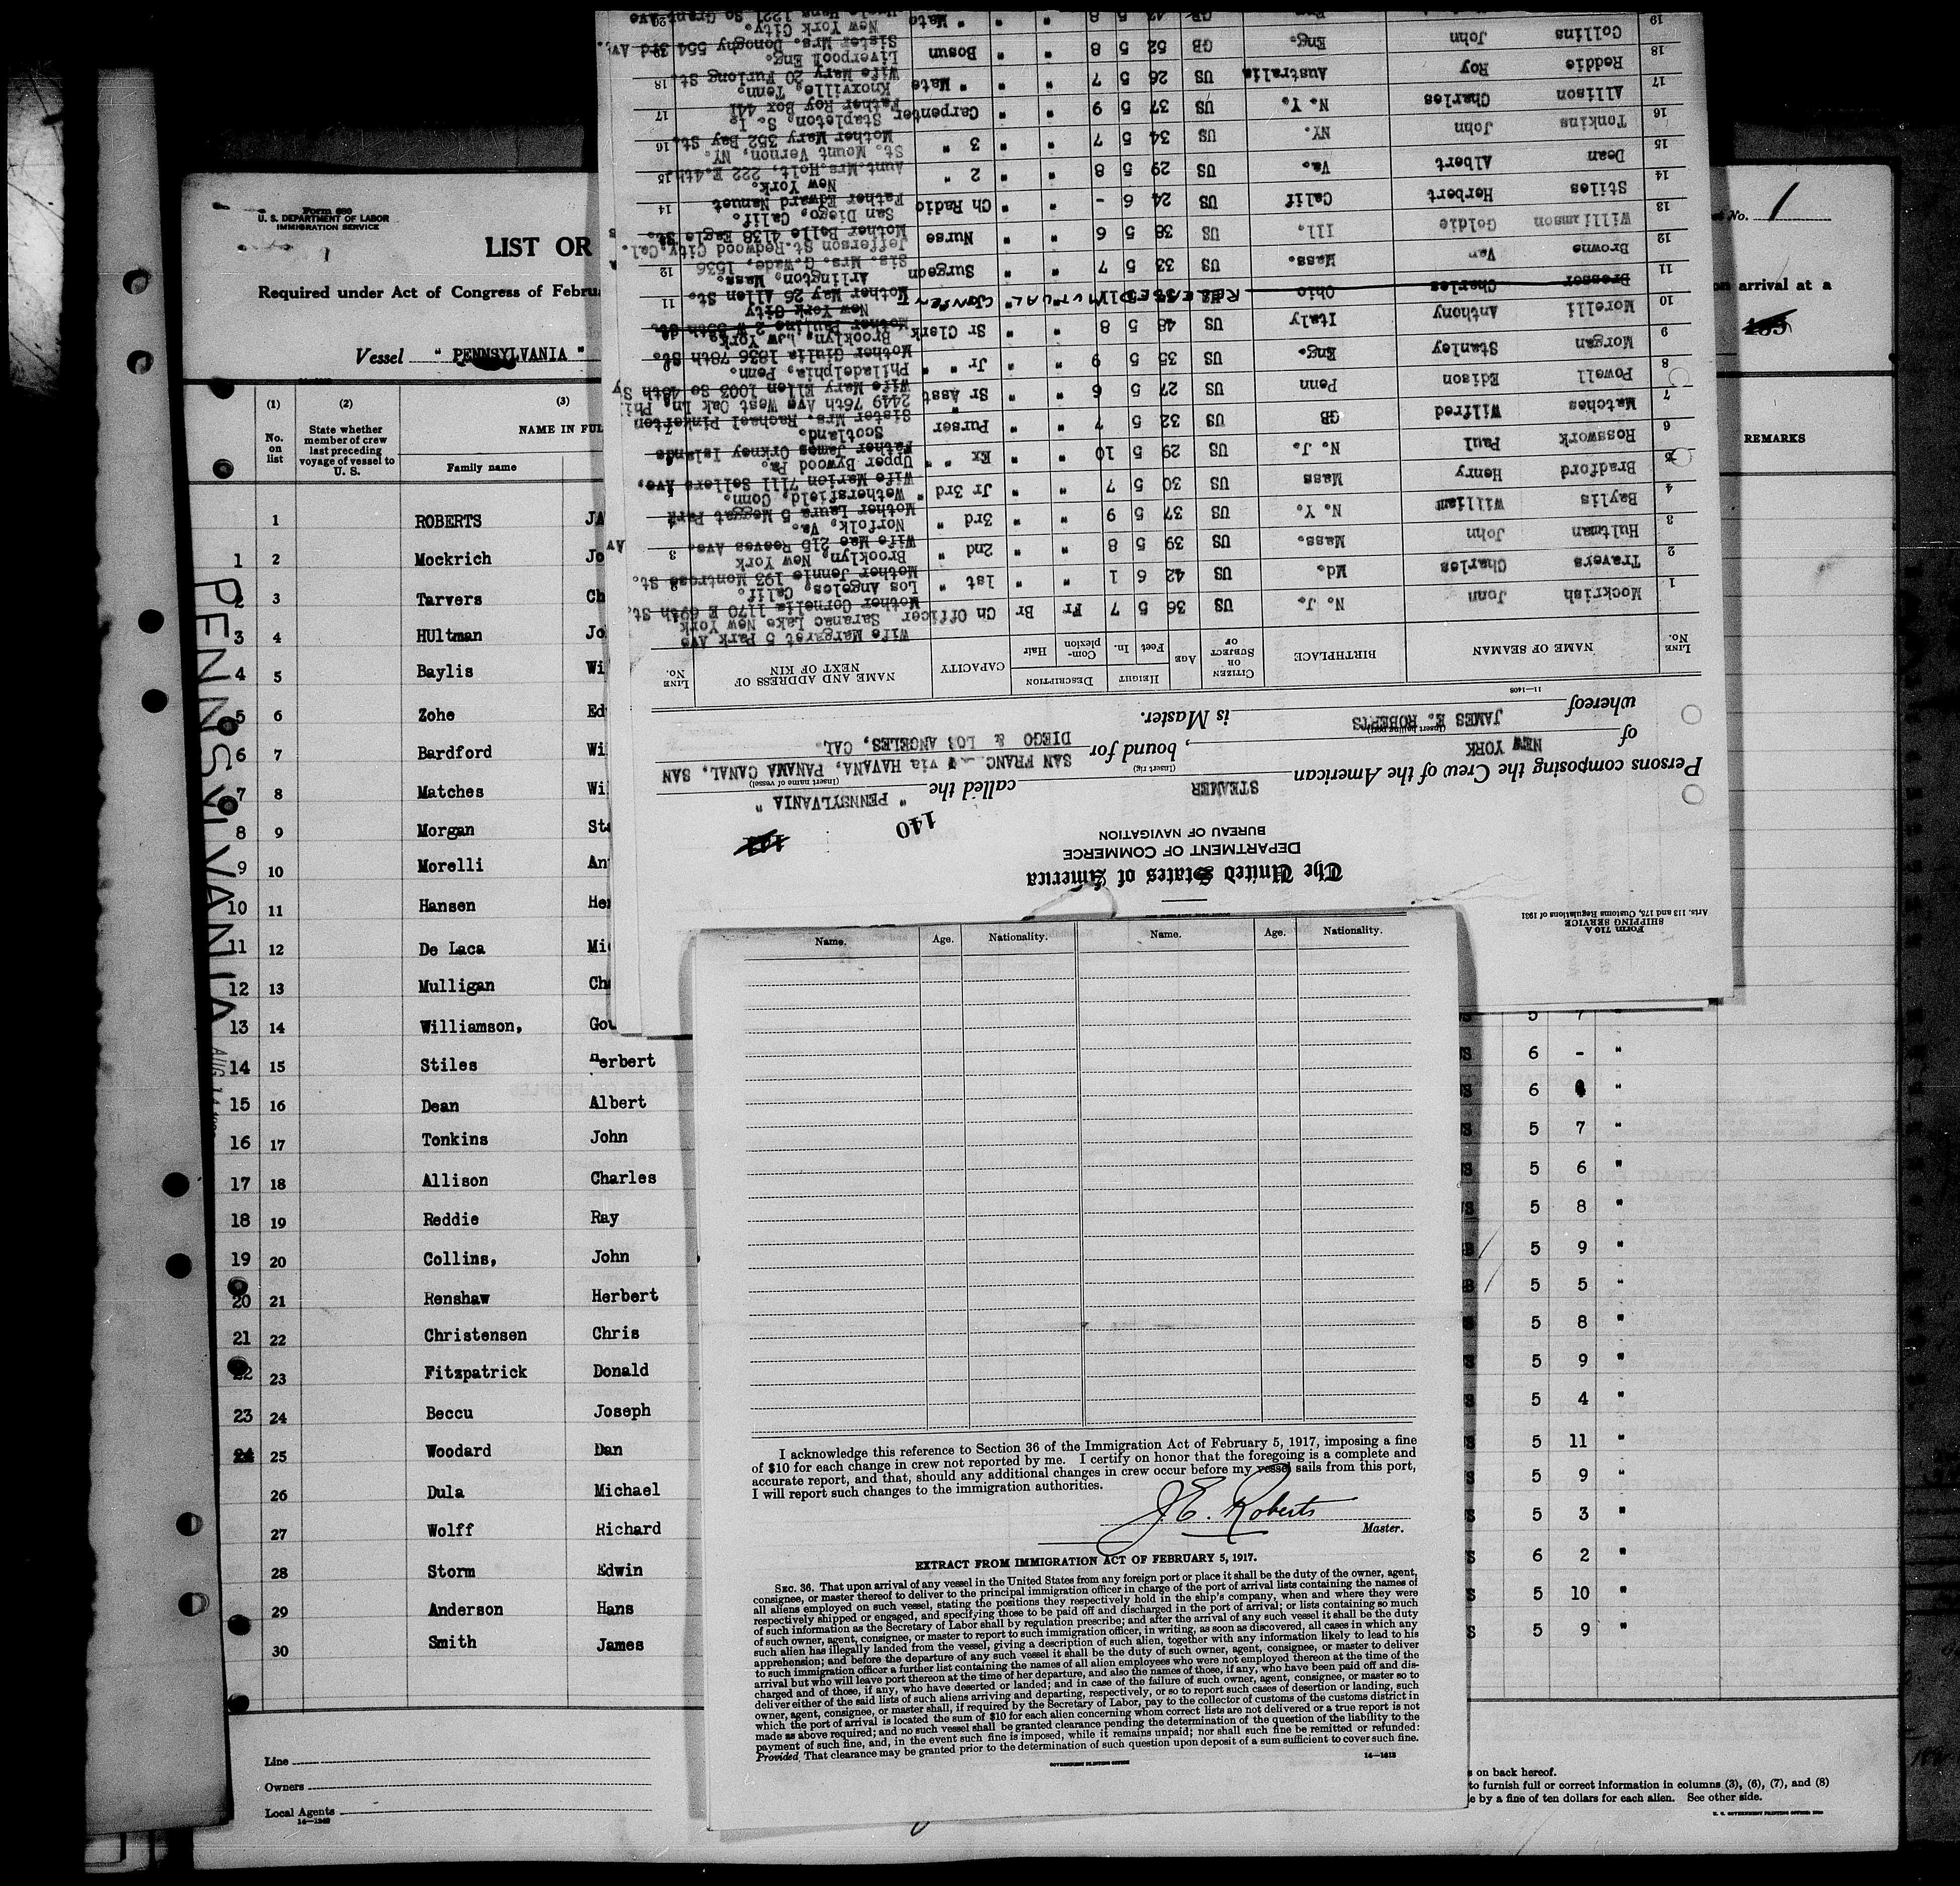 Form 680
U. S. DEPARTMENT OF LABOR
IMMIGRATION SERVICE
LIST OR
Required under Act of Congress of Februa
Vessel " PENNSYLVANIA "
No. 1
on arrival at a
(1) (2) (3)
No. on list
State whether member of crew last preceding voyage of vessel to U. S.
NAME IN FUL
Family name
REMARKS
1 ROBERTS JA
1 2 Mockrich Jo
2 3 Tarvers Ch
3 4 HUltman Jo
4 5 Baylis Wi
5 6 Zohe Ed
6 7 Bardford Wi
7 8 Matches Wi
8 9 Morgan Sta
9 10 Morelli An
10 11 Hansen He
11 12 De Laca Mi
12 13 Mulligan Ch
13 14 Williamson, Go 5 7 "
14 15 Stiles Herbert 6 - "
15 16 Dean Albert 6 "
16 17 Tonkins John 5 7 "
17 18 Allison Charles 5 6 "
18 19 Reddie Ray 5 8 "
19 20 Collins, John 5 9 "
20 21 Renshaw Herbert 5 5 "
21 22 Christensen Chris 5 8 "
22 23 Fitzpatrick Donald 5 9 "
23 24 Beccu Joseph 5 4 "
24 25 Woodard Dan 5 11 "
26 Dula Michael 5 9 "
27 Wolff Richard 5 3 "
28 Storm Edwin 6 2 "
29 Anderson Hans 5 10 "
30 Smith James 5 9 "
PENNSYLVANIA
Line
Owners
Local Agents
s on back hereof.
to furnish full or correct information in columns (3), (6), (7), and (8)
e by a fine of ten dollars for each alien. See other side.
Form 710 A
SHIPPING SERVICE
Arts. 113 and 175, Customs Regulations of 1931
The United States of America
DEPARTMENT OF COMMERCE
BUREAU OF NAVIGATION
140
Persons composing the Crew of the American STEAMER called the " PENNSYLVANIA "
(Insert rig) (Insert name of vessel)
of NEW YORK, bound for SAN FRANC via HAVANA, PANAMA CANAL, SAN DIEGO & LOS ANGELES, CAL.
(Insert hailing port)
whereof JAMES E. ROBERTS is Master.
11—1408
LINE No. NAME OF SEAMAN BIRTHPLACE CITIZEN OR SUBJECT OF AGE HEIGHT Feet In. DESCRIPTION Complexion Hair CAPACITY NAME AND ADDRESS OF NEXT OF KIN LINE No.
1 Mockrish John N. J. US 36 5 7 Fr Br Ch Officer Wife Margaret 5 Park Ave Saranac Lake New York
2 Travers Charles Md. US 42 6 1 " " 1st " Mother Cornelia 1170 E 69th St. Los Angeles, Calif.
3 Hultman John Mass. US 39 5 8 " " 2nd " Mother Jennie 193 Montrose St. Brooklyn, New York
4 Baylis William N. Y. US 37 5 9 " " 3rd " Wife Mae 215 Reaves Ave. Norfolk, Va.
5 Bradford Henry Mass US 30 5 7 " " Jr 3rd " Mother Laura 5 Meggat Park Wethersfield, Conn.
6 Rosswork Paul N. J. US 29 5 10 " " Ex " Wife Marion 7111 Sellers Ave. Upper Bywood Pa.
7 Matches Wilfred GB US 32 5 7 " " Purser Father James Orkney Islands Scotland.
8 Powell Edison Penn US 27 5 6 " " Sr Asst " Sister Mrs. Rachael Pinkerton 2449 76th Ave West Oak Ln, Phil
9 Morgan Stanley Eng. US 35 5 9 " " Jr " " Wife Mary Ellen 1003 So 48th St Philadelphia, Penn.
10 Morelli Anthony Italy US 48 5 8 " " Sr Clerk Mother Giulia 1836 78th St. Brooklyn, New York.
11 Dresser Charles Ohio RELEASED MUTUAL CONSENT Mother Pauline 2 W 55th St. New York City
12 Browne Van Mass. US 33 5 7 " " Surgeon Mother May 26 Allen St. Arlington, Mass.
13 Williamson Goldie Ill. US 38 5 6 " " Nurse Sis. Mrs. G. Wade, 1536 Jefferson St. Redwood City, Cal.
14 Stiles Herbert Calif US 24 6 - " " Ch Radio Mother Belle 4138 Eagle St. San Diego, Calif.
15 Dean Albert Va. US 29 5 8 " " 2 " Father Edward Nanuet New York.
16 Tonkins John NY. US 34 5 7 " " 3 " Aunt. Mrs. Holt, 222 E. 4th St. Mount Vernon, NY.
17 Allison Charles N. Y. US 37 5 9 " " Carpenter Mother Mary 352 Bay St. Stapleton, S. I.
18 Reddie Roy Australia US 26 5 7 " " " Mate Father Roy Box 441 Knoxville, Tenn.
19 Collins John Eng. GB 52 5 8 " " Bosun Wife Mary 20 Furlong St. Liverpool Eng.
" Mate Sister Mrs. Donoghy 554 3rd Av. New York City.
Name. Age. Nationality. Name. Age. Nationality.
I acknowledge this reference to Section 36 of the Immigration Act of February 5, 1917, imposing a fine
of $10 for each change in crew not reported by me. I certify on honor that the foregoing is a complete and
accurate report, and that, should any additional changes in crew occur before my vessel sails from this port,
I will report such changes to the immigration authorities.
J. E. Roberts
Master.
EXTRACT FROM IMMIGRATION ACT OF FEBRUARY 5, 1917.
SEC. 36. That upon arrival of any vessel in the United States from any foreign port or place it shall be the duty of the owner, agent,
consignee, or master thereof to deliver to the principal immigration officer in charge of the port of arrival lists containing the names of
all aliens employed on such vessel, stating the positions they respectively hold in the ship's company, when and where they were
respectively shipped or engaged, and specifying those to be paid off and discharged in the port of arrival; or lists containing so much
of such information as the Secretary of Labor shall by regulation prescribe; and after the arrival of any such vessel it shall be the duty
of such owner, agent, consignee, or master to report to such immigration officer, in writing, as soon as discovered, all cases in which any
such alien has illegally landed from the vessel, giving a description of such alien, together with any information likely to lead to his
apprehension; and before the departure of any such vessel it shall be the duty of such owner, agent, consignee, or master to deliver
to such immigration officer a further list containing the names of all alien employees who were not employed thereon at the time of the
arrival but who will leave port thereon at the time of her departure, and also the names of those, if any, who have been paid off and dis-
charged and of those, if any, who have deserted or landed; and in case of the failure of such owner, agent, consignee, or master so to
deliver either of the said lists of such aliens arriving and departing, respectively, or so to report such cases of desertion or landing, such
owner, agent, consignee, or master shall, if required by the Secretary of Labor, pay to the collector of customs of the customs district in
which the port of arrival is located the sum of $10 for each alien concerning whom correct lists are not delivered or a true report is not
made as above required; and no such vessel shall be granted clearance pending the determination of the question of the liability to the
payment of such fine, and, in the event such fine is imposed, while it remains unpaid; nor shall such fine be remitted or refunded:
Provided, That clearance may be granted prior to the determination of such question upon deposit of a sum sufficient to cover such fine.
GOVERNMENT PRINTING OFFICE
14—1613